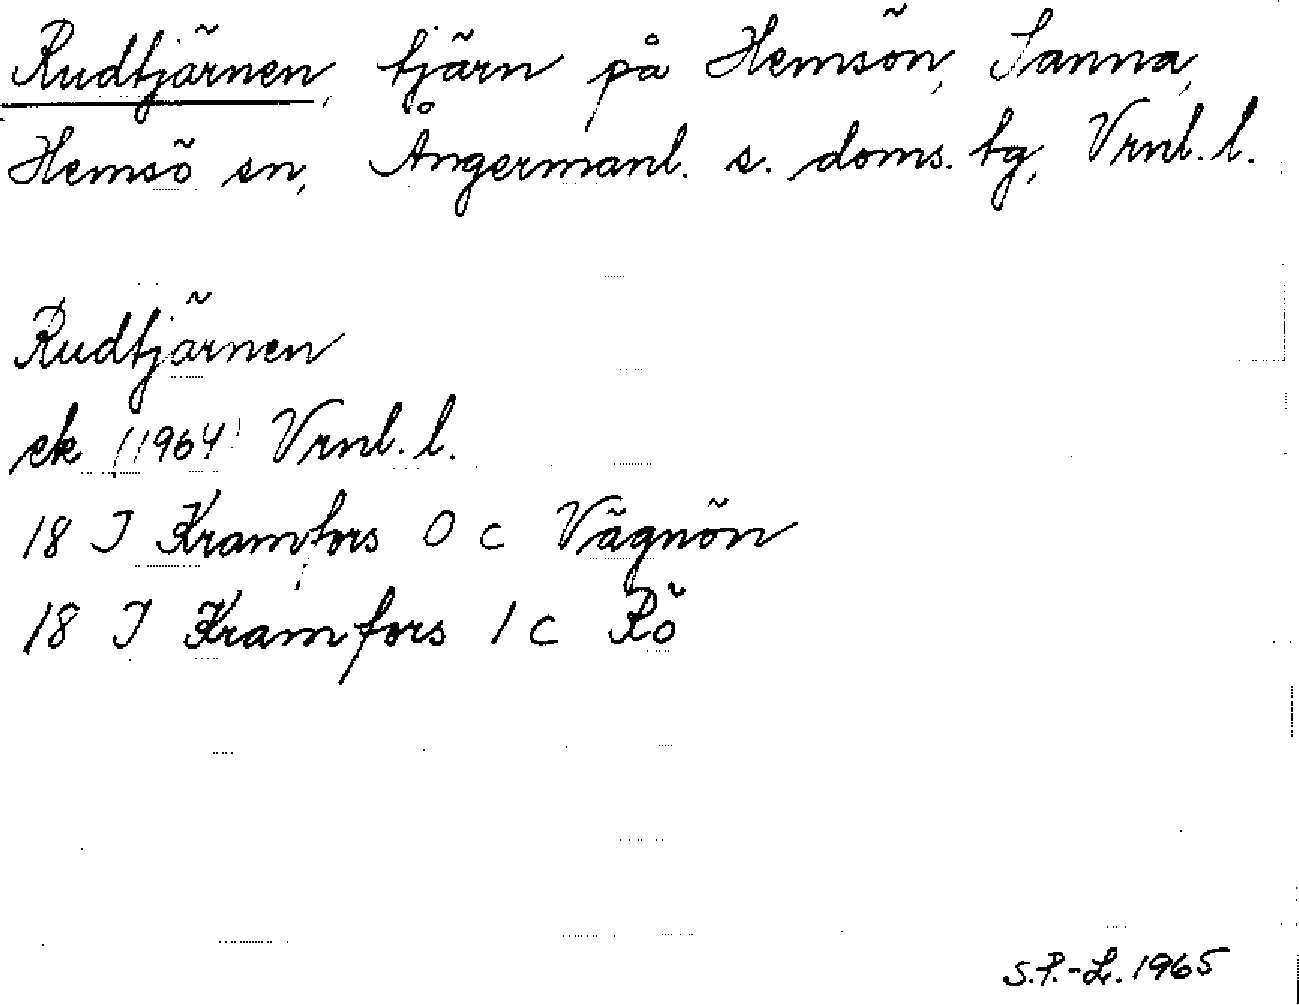 Rudtjärnen, tjärn på Hemsön, Sanna,
Hemsö sn, Ångermanl. s. doms. tg, Vrnl. l.
Rudtjärnen
ek (1964) Vrnl. l.
18 I Kramfors 0 c Vägnön
18 I Kramfors 1 c Rö
S.P.-L. 1965